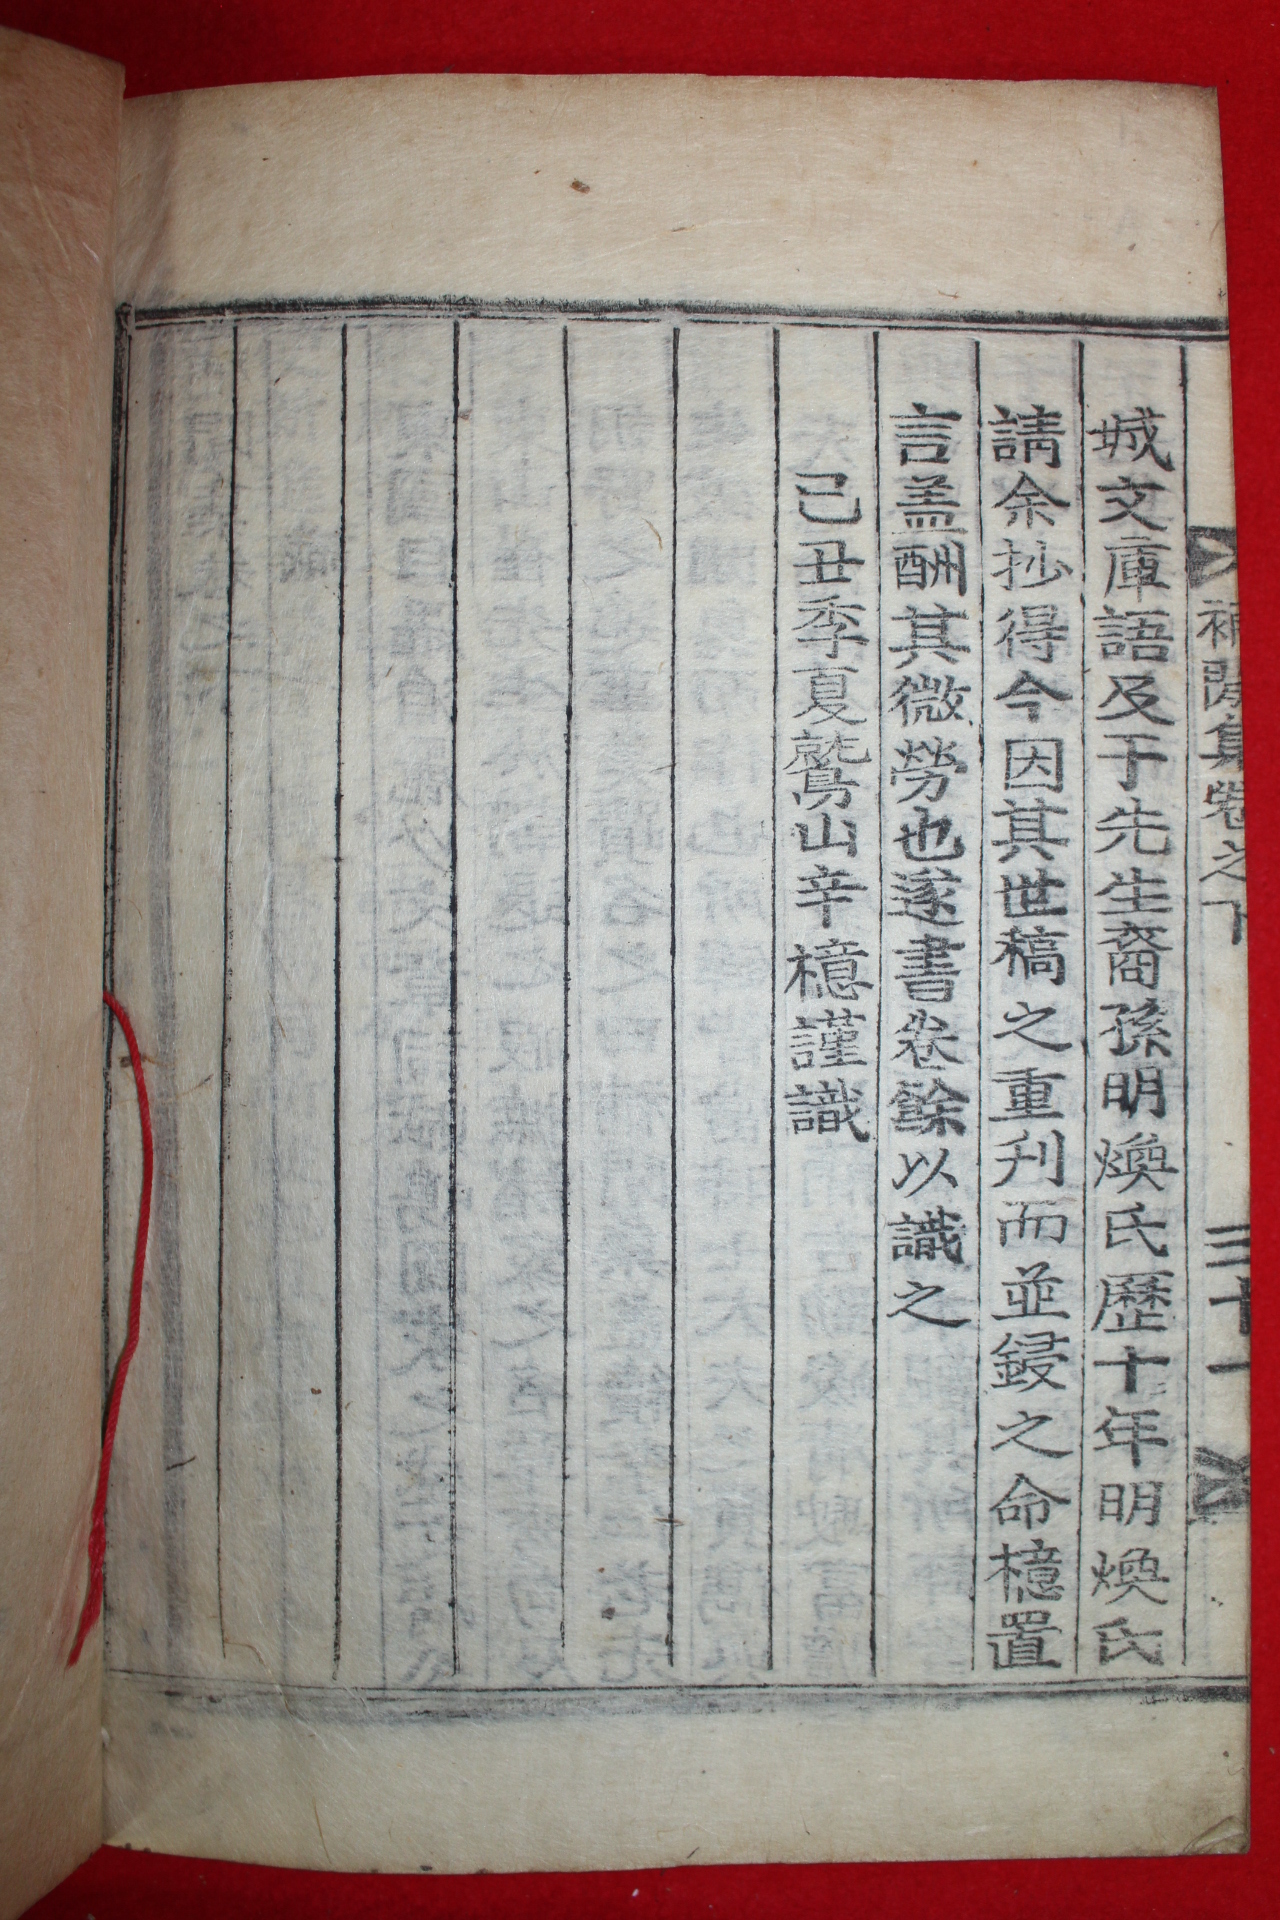 城文庫語及于先生裔孫明煥氏歷十年明煥氏
請余抄得今因其世稿之重刊而並鋟之命檍置
言盖酬其微勞也遂書卷餘以識之
己丑季夏鷲山辛檍謹識
補閑集卷之下
三十一